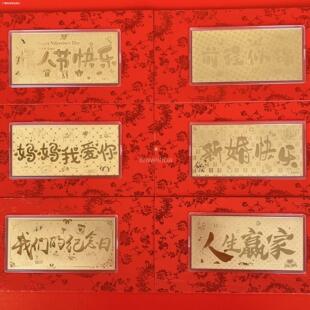 Valentine's Day
人节快乐
妈妈我爱你
新婚快乐
我们的纪念日
人生赢家